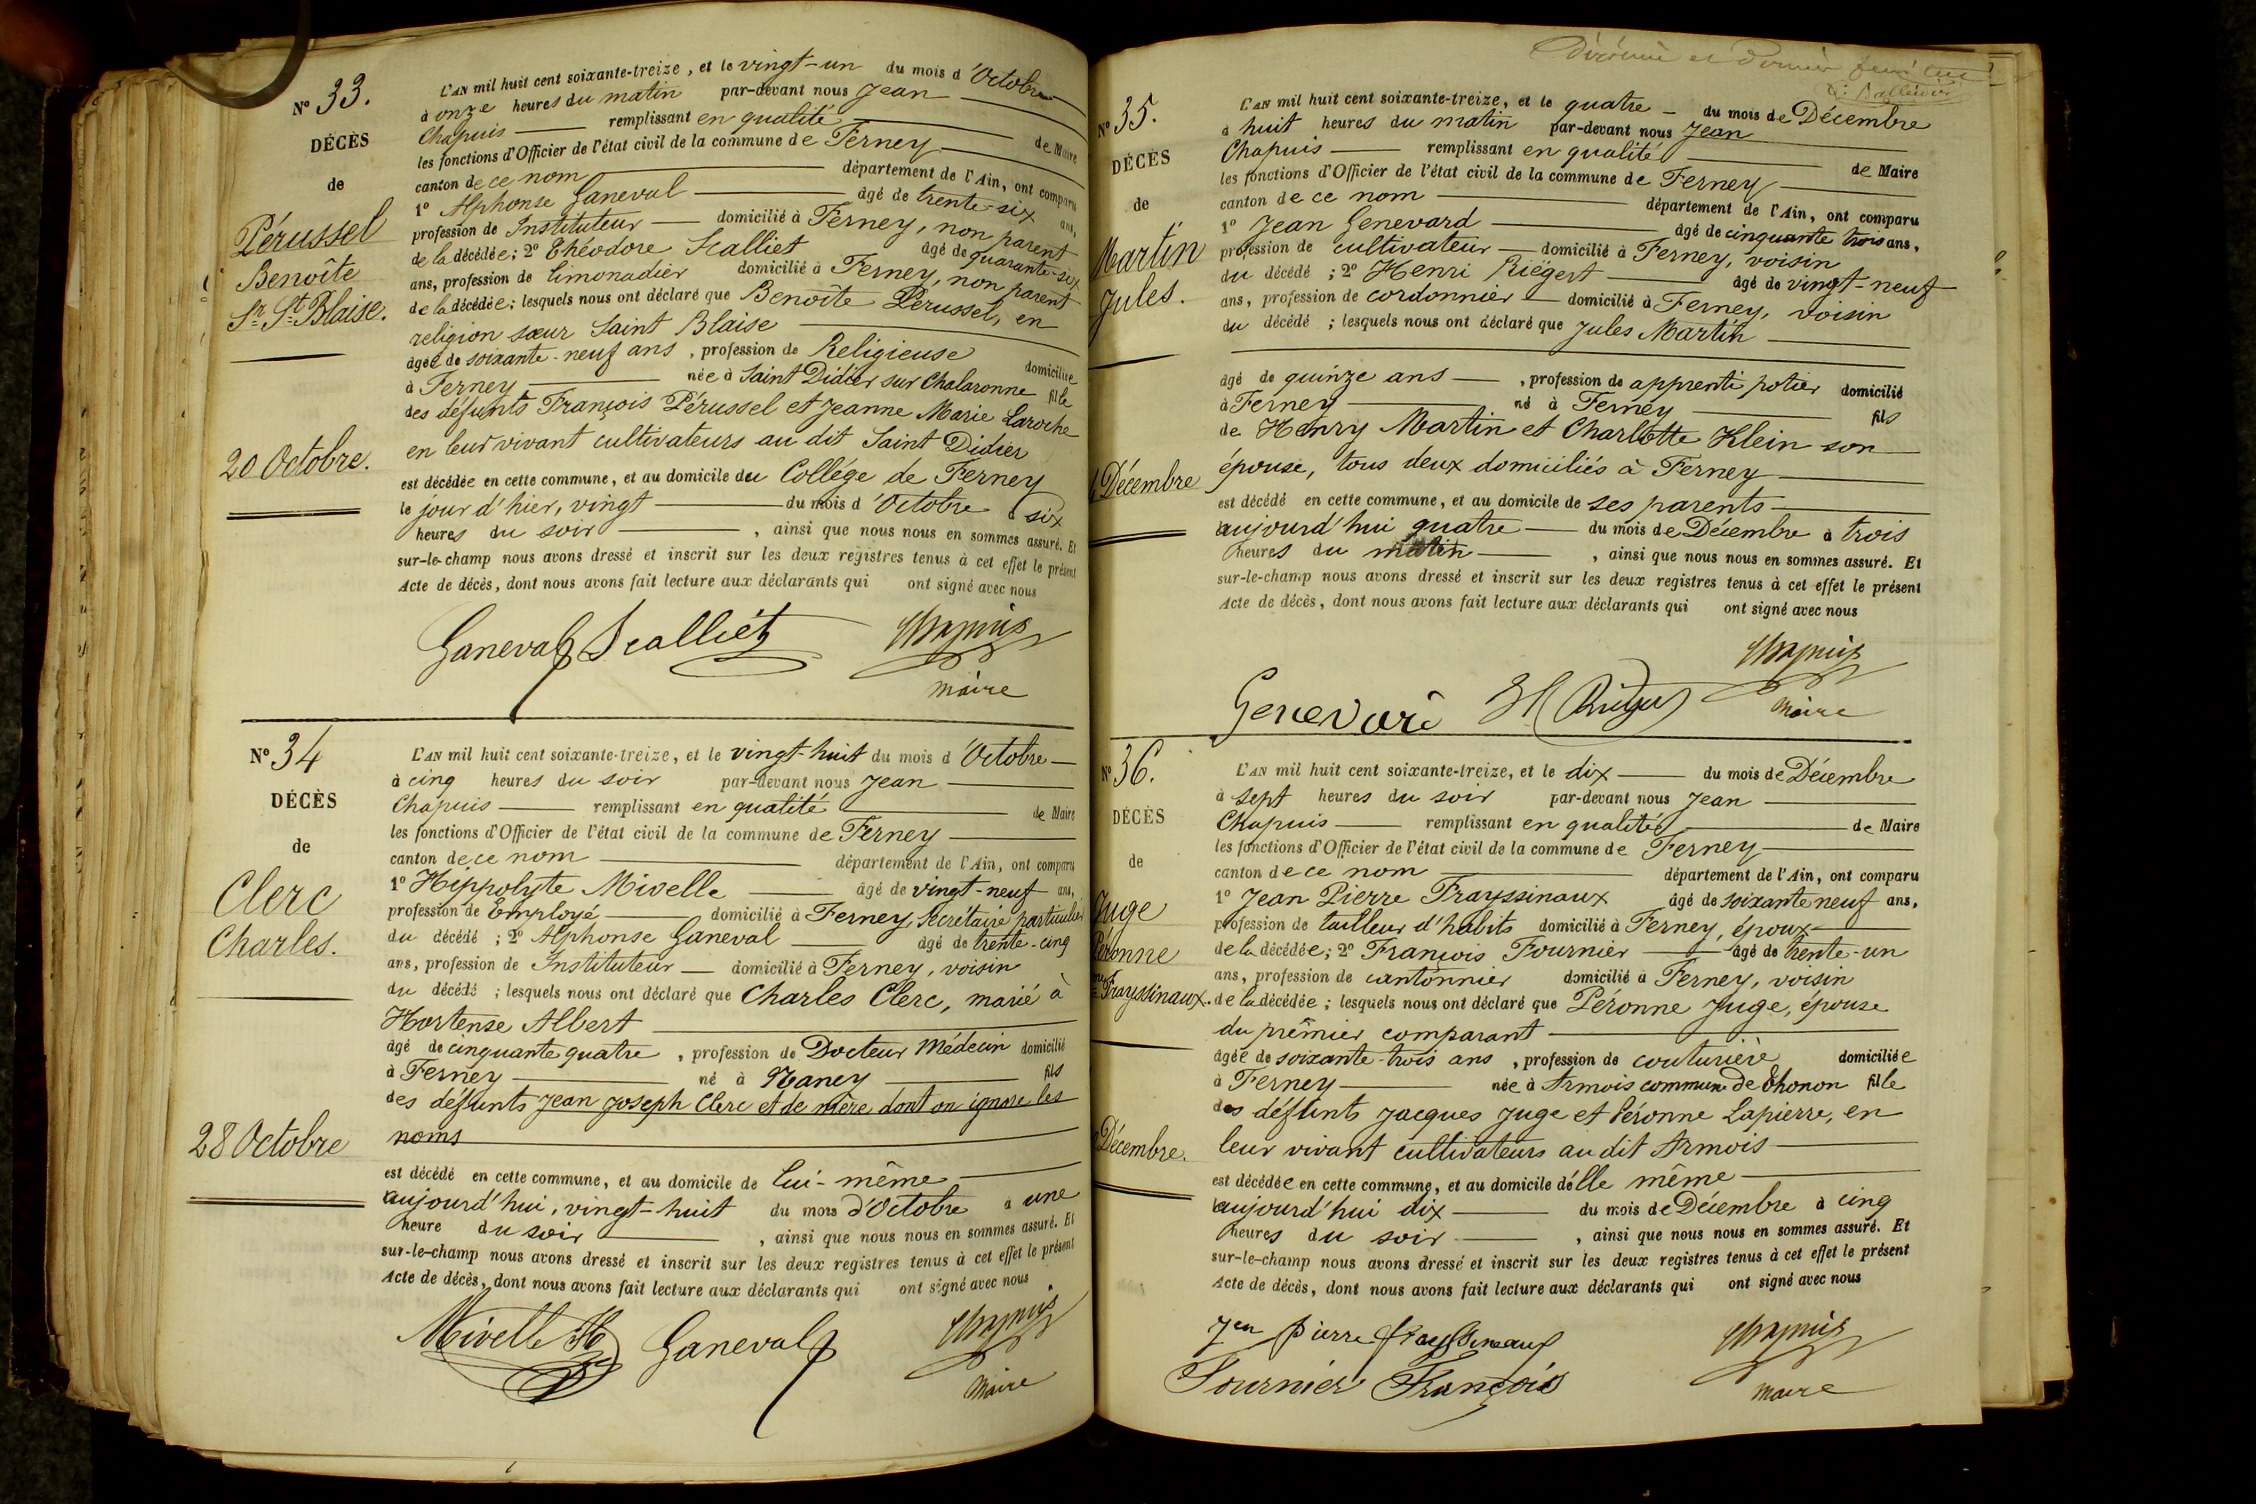 N° 33.
DÉCÈS
de
Pérussel
Benoîte
Sr St Blaise.
20 Octobre.
L'AN mil huit cent soixante-treize, et le vingt-un du mois d'Octobre
à onze heures du matin par-devant nous Jean
Chapuis remplissant en qualité de Maire
les fonctions d'Officier de l'état civil de la commune de Ferney
canton de ce nom département de l'Ain, ont comparu
1° Alphonse Ganeval âgé de trente-six ans,
profession de Instituteur domicilié à Ferney, non parent
de la décédée; 2° Théodore Scalliet âgé de quarante-six
ans, profession de limonadier domicilié à Ferney, non parent
de la décédée; lesquels nous ont déclaré que Benoîte Pérussel, en
religion sœur Saint Blaise
agée de soixante-neuf ans, profession de Religieuse domiciliée
à Ferney née à Saint Didier sur Chalaronne fille
des défunts François Pérussel et Jeanne Marie Laroche
en leur vivant cultivateurs au dit Saint Didier
est décédée en cette commune, et au domicile du Collége de Ferney
le jour d'hier, vingt du mois d'Octobre à six
heures du soir, ainsi que nous nous en sommes assuré. Et
sur-le-champ nous avons dressé et inscrit sur les deux registres tenus à cet effet le présent
Acte de décès, dont nous avons fait lecture aux déclarants qui ont signé avec nous
Ganeval Scalliet Chapuis
Maire
N° 34
DÉCÈS
de
Clerc
Charles.
28 Octobre
L'AN mil huit cent soixante-treize, et le vingt-huit du mois d'Octobre
à cinq heures du soir par-devant nous Jean
Chapuis remplissant en qualité de Maire
les fonctions d'Officier de l'état civil de la commune de Ferney
canton de ce nom département de l'Ain, ont comparu
1° Hippolyte Mivelle âgé de vingt-neuf ans,
profession de Employé domicilié à Ferney, secrétaire particulier
du décédé; 2° Alphonse Ganeval âgé de trente-cinq
ans, profession de Instituteur domicilié à Ferney, voisin
du décédé; lesquels nous ont déclaré que Charles Clerc, marié à
Hortense Albert
âgé de cinquante quatre, profession de Docteur Médecin domicilié
à Ferney né à Nancy fils
des défunts Jean Joseph Clerc et de mère dont on ignore les
noms
est décédé en cette commune, et au domicile de lui-même
aujourd'hui, vingt-huit du mois d'Octobre à une
heure du soir, ainsi que nous nous en sommes assuré. Et
sur-le-champ nous avons dressé et inscrit sur les deux registres tenus à cet effet le présent
Acte de décès, dont nous avons fait lecture aux déclarants qui ont signé avec nous
Mivelle H Ganeval Chapuis
Maire
N° 35.
DÉCÈS
de
Martin
Jules.
4 Décembre
L'AN mil huit cent soixante-treize, et le quatre du mois de Décembre
à huit heures du matin par-devant nous Jean
Chapuis remplissant en qualité de Maire
les fonctions d'Officier de l'état civil de la commune de Ferney
canton de ce nom département de l'Ain, ont comparu
1° Jean Genevard âgé de cinquante trois ans,
profession de cultivateur domicilié à Ferney, voisin
du décédé; 2° Henri Riégert âgé de vingt-neuf
ans, profession de cordonnier domicilié à Ferney, voisin
du décédé; lesquels nous ont déclaré que Jules Martin
âgé de quinze ans, profession de apprenti potier domicilié
à Ferney né à Ferney fils
de Henry Martin et Charlotte Klein son
épouse, tous deux domiciliés à Ferney
est décédé en cette commune, et au domicile de ses parents
aujourd'hui quatre du mois de Décembre à trois
heures du matin, ainsi que nous nous en sommes assuré. Et
sur-le-champ nous avons dressé et inscrit sur les deux registres tenus à cet effet le présent
Acte de décès, dont nous avons fait lecture aux déclarants qui ont signé avec nous
Chapuis
Genevard
Maire
N° 36.
DÉCÈS
de
Juge
Péronne
Frayssinaux.
Décembre.
L'AN mil huit cent soixante-treize, et le dix du mois de Décembre
à sept heures du soir par-devant nous Jean
Chapuis remplissant en qualité de Maire
les fonctions d'Officier de l'état civil de la commune de Ferney
canton de ce nom département de l'Ain, ont comparu
1° Jean Pierre Frayssinaux âgé de soixante neuf ans,
profession de tailleur d'habits domicilié à Ferney, époux
de la décédée; 2° François Fournier âgé de trente-un
ans, profession de cantonnier domicilié à Ferney, voisin
de la décédée; lesquels nous ont déclaré que Péronne Juge, épouse
du prémier comparant
âgée de soixante-trois ans, profession de couturière domiciliée
à Ferney née à Armois commune de Thonon fille
des défunts Jacques Juge et Péronne Lapierre, en
leur vivant cultivateurs au dit Armois
est décédée en cette commune, et au domicile d'elle même
aujourd'hui dix du mois de Décembre à cinq
heures du soir, ainsi que nous nous en sommes assuré. Et
sur-le-champ nous avons dressé et inscrit sur les deux registres tenus à cet effet le présent
Acte de décès, dont nous avons fait lecture aux déclarants qui ont signé avec nous
Jean pierre frayssinaux Chapuis
Fournier François Maire